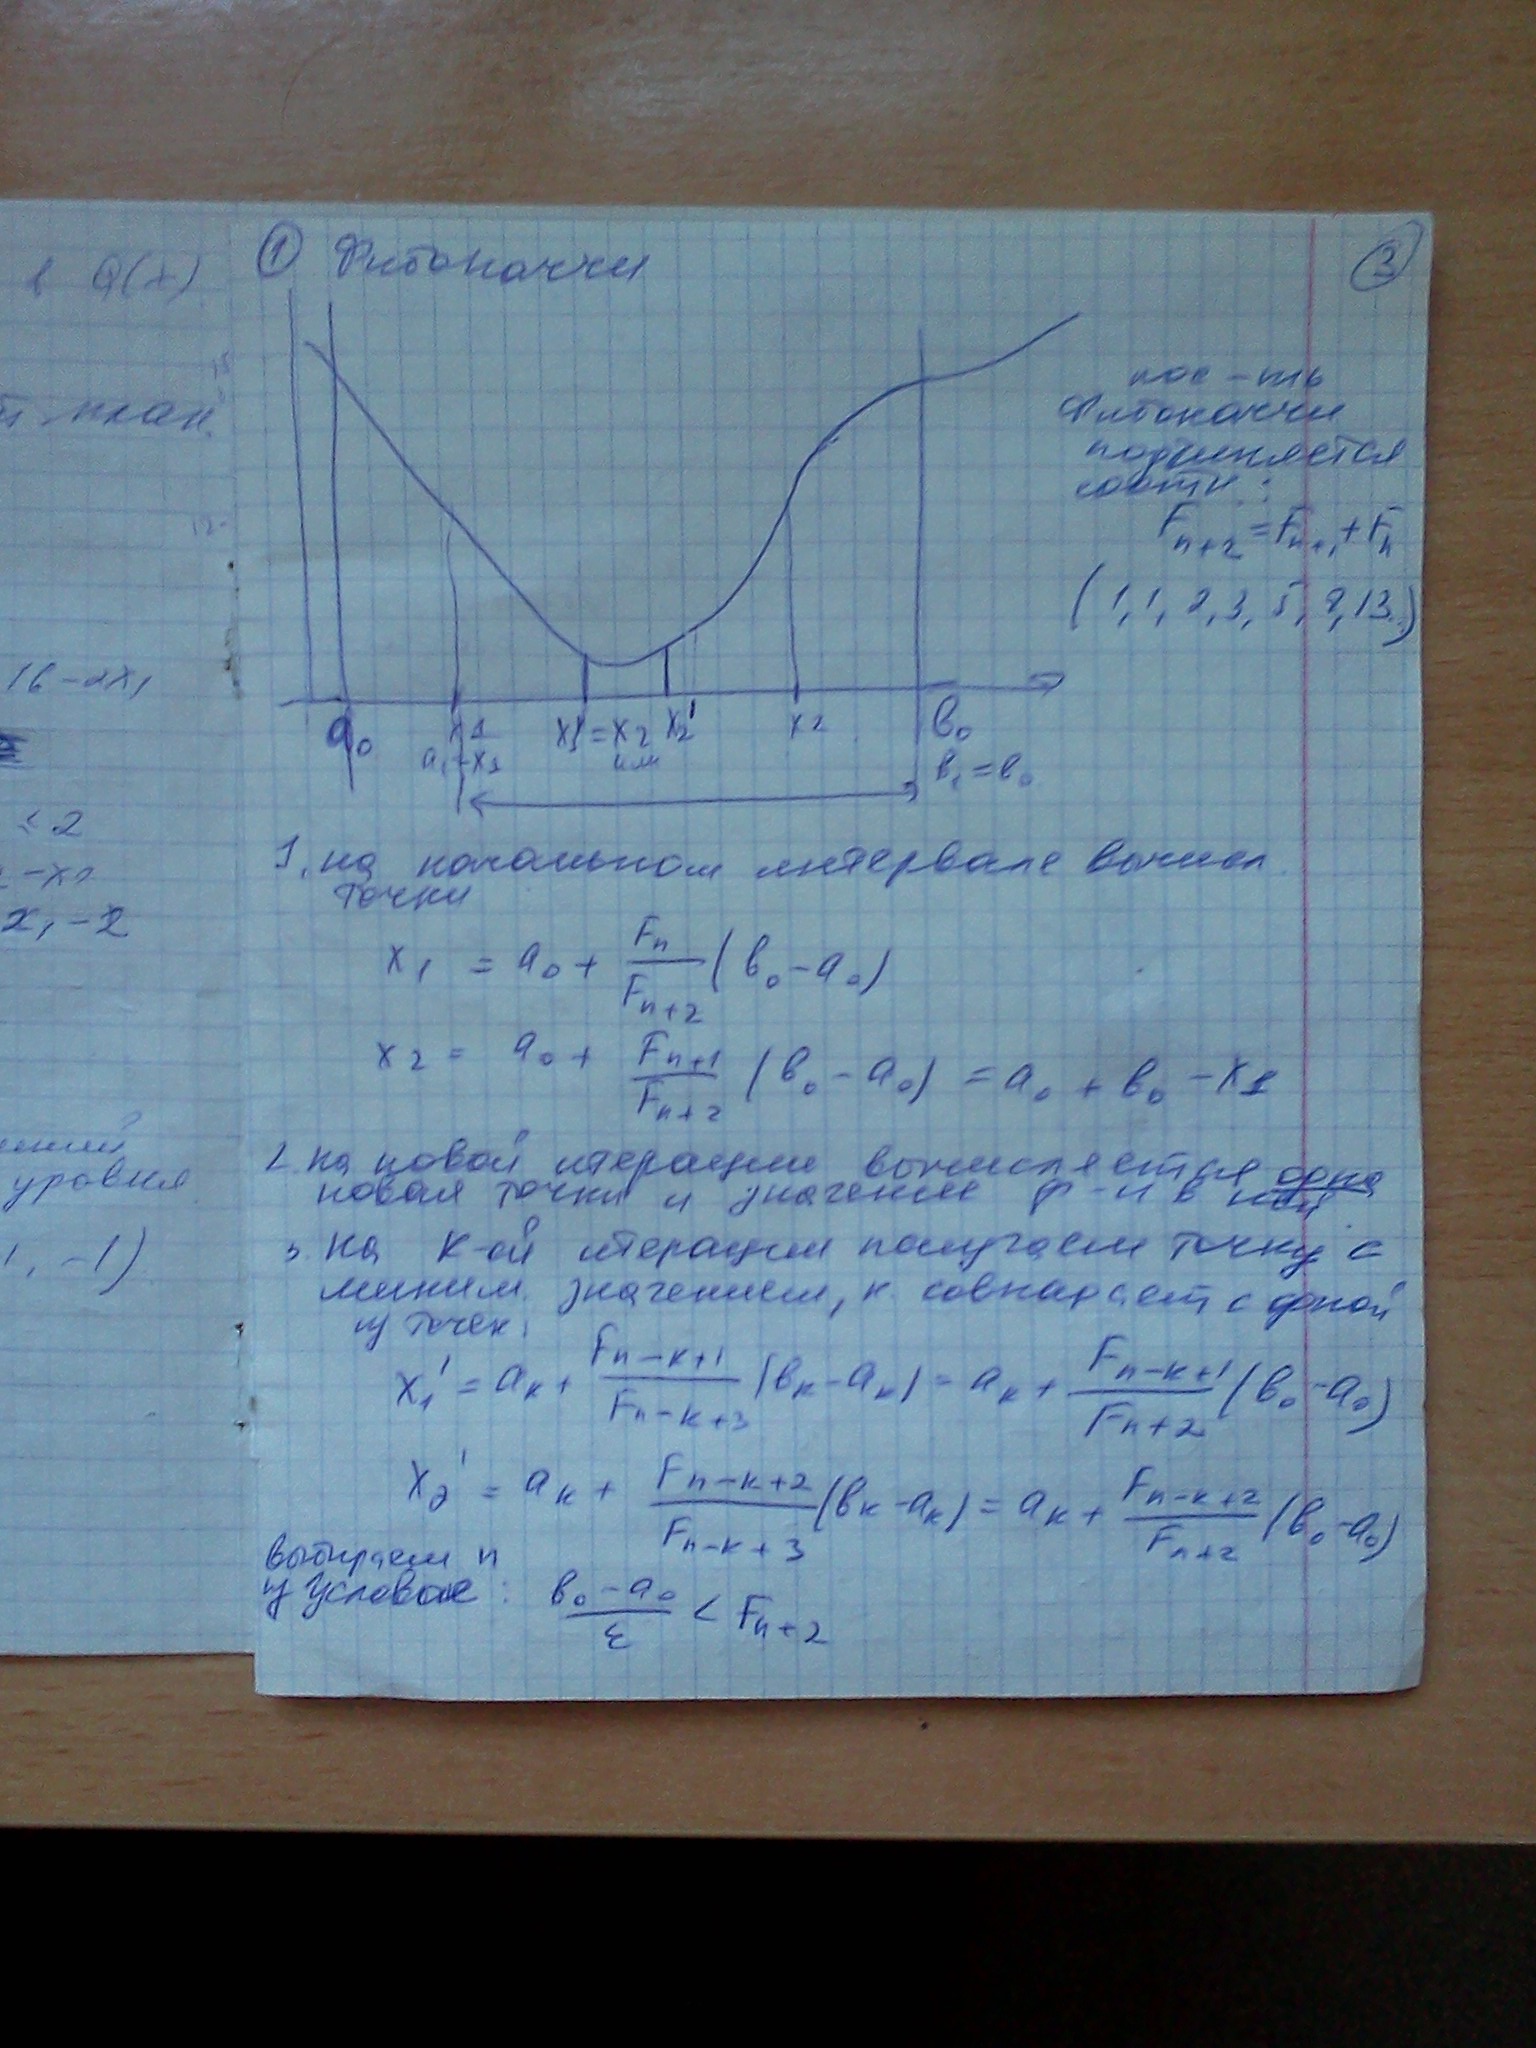 в Q(x)
план.
16-2x₁
≤ 2
x₁-2
уровня
1, -1)
① Фибоначчи
③
пос-ть
Фибоначчи
подчиняется
соотн.:
Fₙ₊₂=Fₙ₊₁+Fₙ
(1,1,2,3,5,8,13..)
a₀ x₁ x₁'=x₂ x₂' x₂ b₀
a₁=x₁ или b₁=b₀
1. на начальном интервале вычисл.
точки
x₁ = a₀ + Fₙ/Fₙ₊₂ (b₀-a₀)
x₂ = a₀ + Fₙ₊₁/Fₙ₊₂ (b₀-a₀) = a₀ + b₀ - x₁
2. на новой итерации вычисляется одна
новая точка и значение ф-и в ней.
3. на k-ой итерации получаем точку с
миним. значением, к совпадает с одной
из точек:
x₁' = aₖ + Fₙ₋ₖ₊₁/Fₙ₋ₖ₊₃ (bₖ-aₖ) = aₖ + Fₙ₋ₖ₊₁/Fₙ₊₂ (b₀-a₀)
x₂' = aₖ + Fₙ₋ₖ₊₂/Fₙ₋ₖ₊₃ (bₖ-aₖ) = aₖ + Fₙ₋ₖ₊₂/Fₙ₊₂ (b₀-a₀)
выбираем n
из условие: (b₀-a₀)/ε < Fₙ₊₂